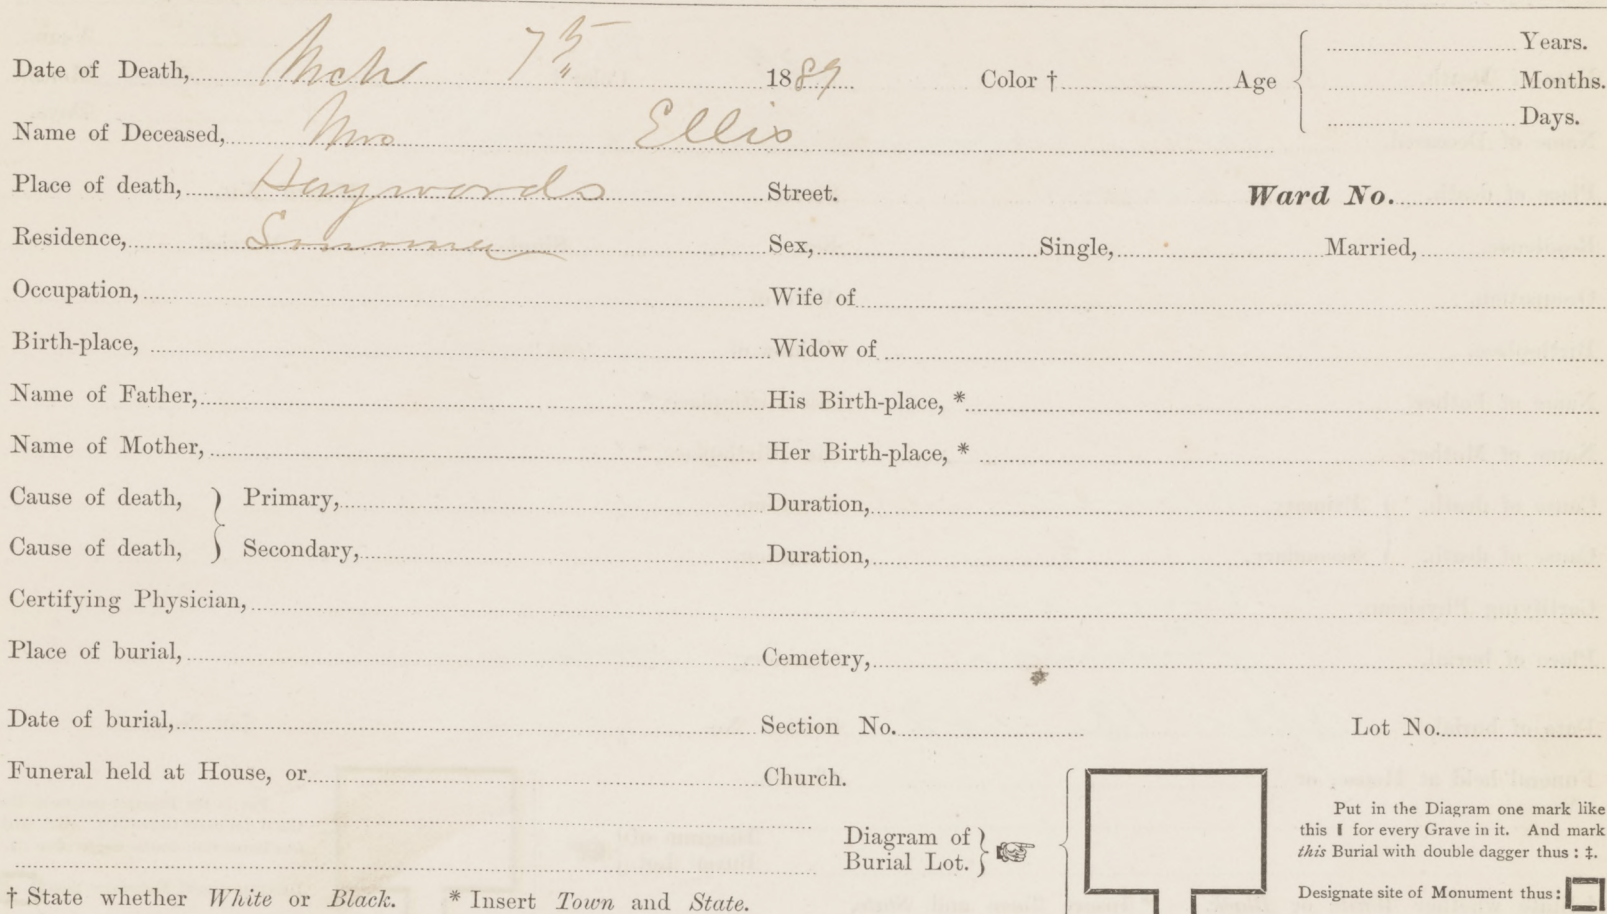 Date of Death, Mch 7th 1889 Color † Age Years.
Months.
Days.
Name of Deceased, Mrs Ellis
Place of death, Haywords Street. Ward No.
Residence, Sonoma Sex, Single, Married,
Occupation, Wife of
Birth-place, Widow of
Name of Father, His Birth-place, *
Name of Mother, Her Birth-place, *
Cause of death, Primary, Duration,
Cause of death, Secondary, Duration,
Certifying Physician,
Place of burial, Cemetery,
Date of burial, Section No. Lot No.
Funeral held at House, or Church.
Diagram of
Burial Lot.
Put in the Diagram one mark like
this ❙ for every Grave in it. And mark
this Burial with double dagger thus : ‡.
Designate site of Monument thus :
† State whether White or Black. * Insert Town and State.